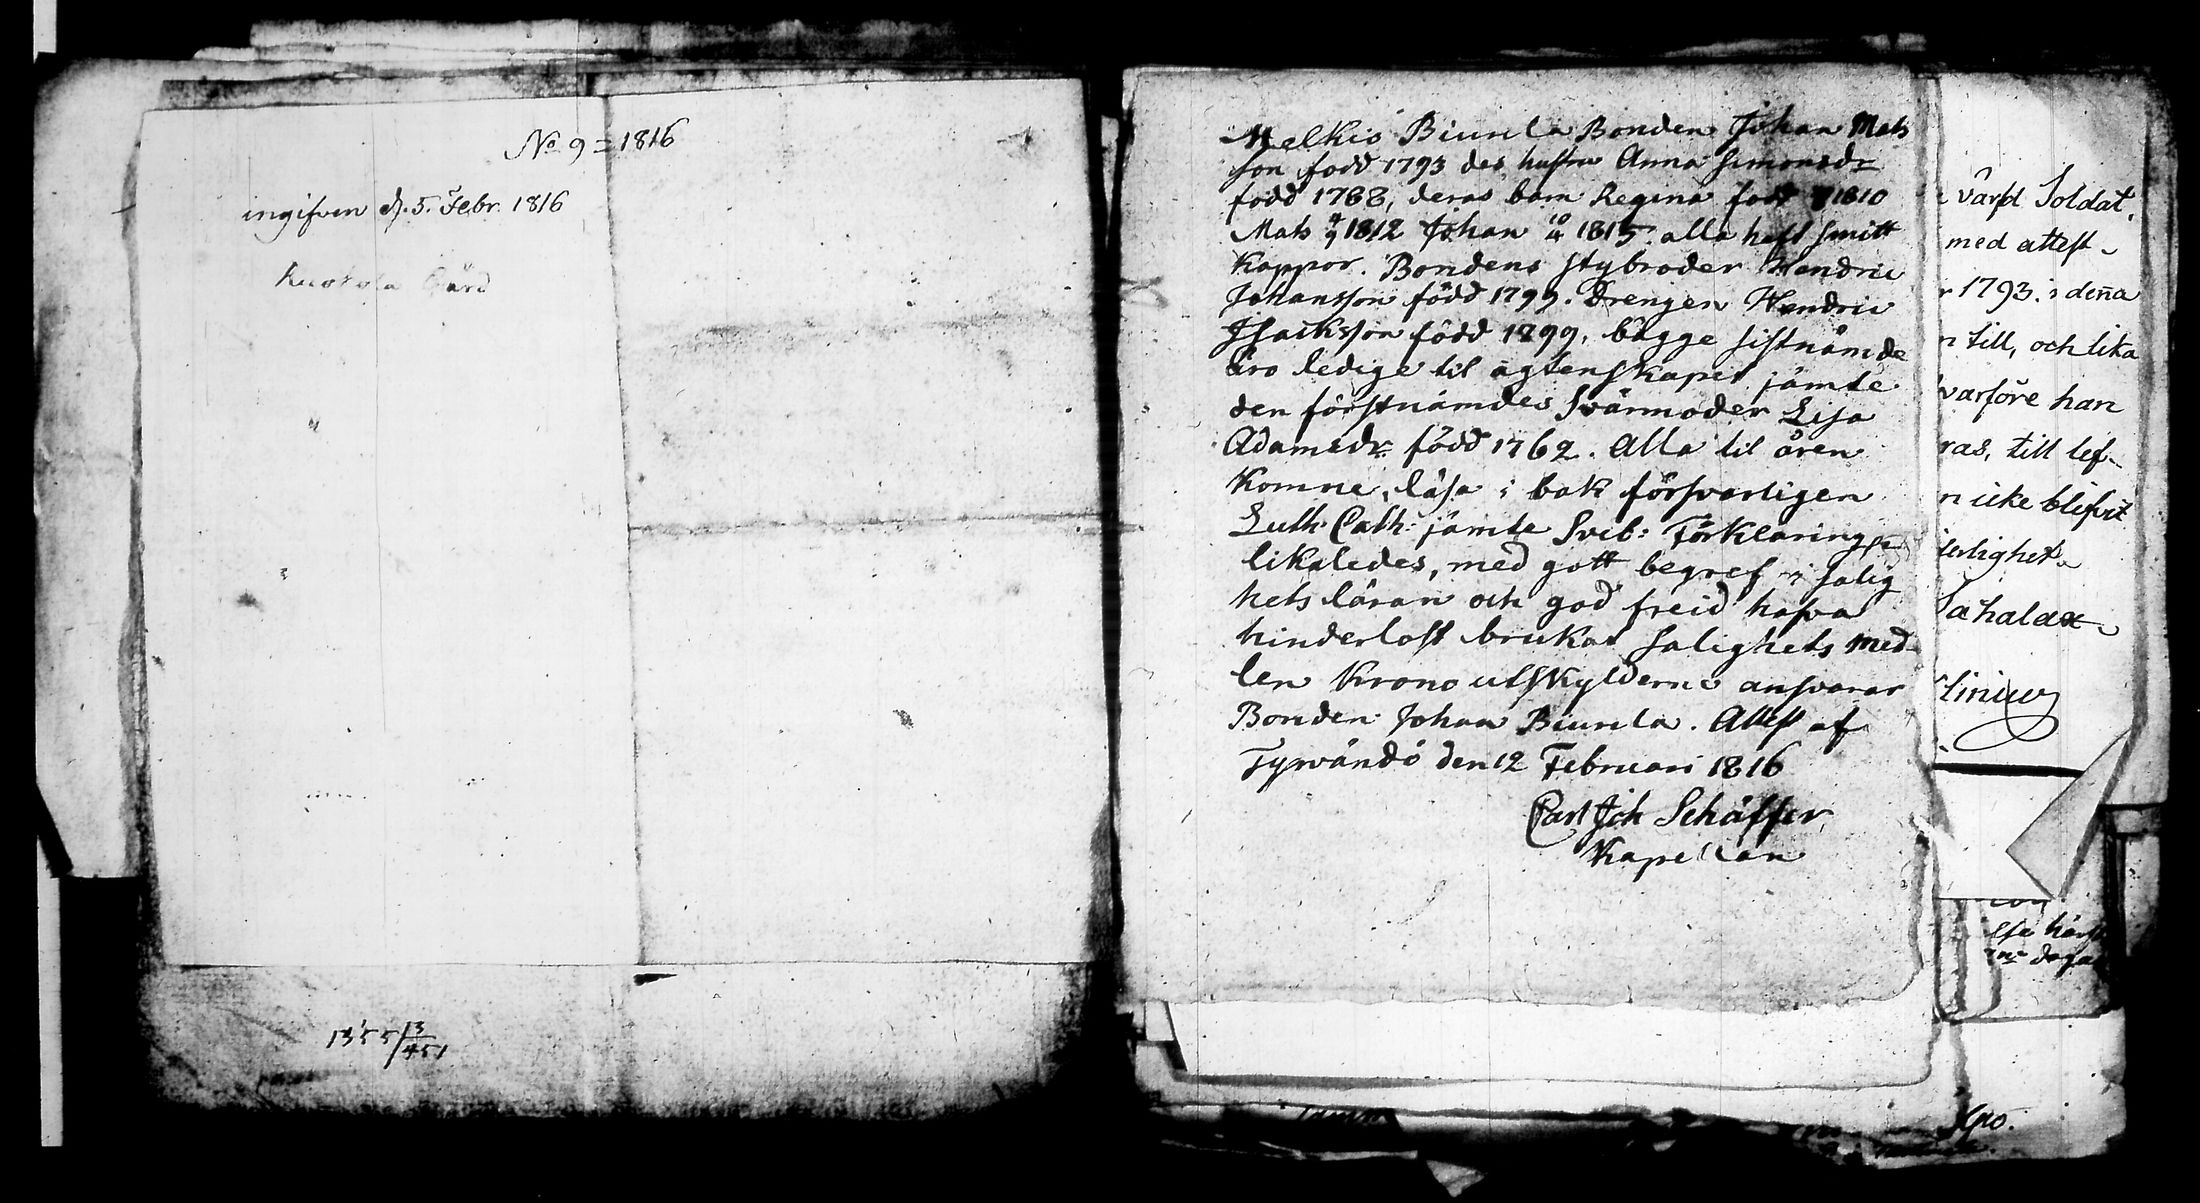 No 9 = 1816
ingifven d. 5. Febr. 1816
Gård
1355/13/451
Melkio Biurula Bonden Johan Mats
son född 1793 des hustru Anna Simonsdr
född 1788, deras barn Regina född 1810
Mats 4/9 1812 Johan 10/4 1815. alla haft smitt
Koppor. Bondens stybroder Hendric
Johansson född 1799. Drengen Hendric
Isacksson född 1799, bägge sistnämde
äro ledige til ägtenskaper jämte
den förstnämdes Svärmoder Lisa
Adamsdr född 1762. Alla til åren
komne, läsa i bok försvarligen
Luth: Cath: jämte Sveb: Förklaring
likaledes, med gott begref i salig
hets läran och god freid hafva
hinderlöst brukat salighets med
len Krono utskylderne ansvarar
Bonden Johan Biurula. Attest af
Tyrvändö den 12 Februari 1816
Carl Joh Schäffer
Kapellan
värfd Soldat,
med attest
1793. i denna
till, och lika
varföre han
ras, till lef-
n icke blifvit
terlighet
Sahalax